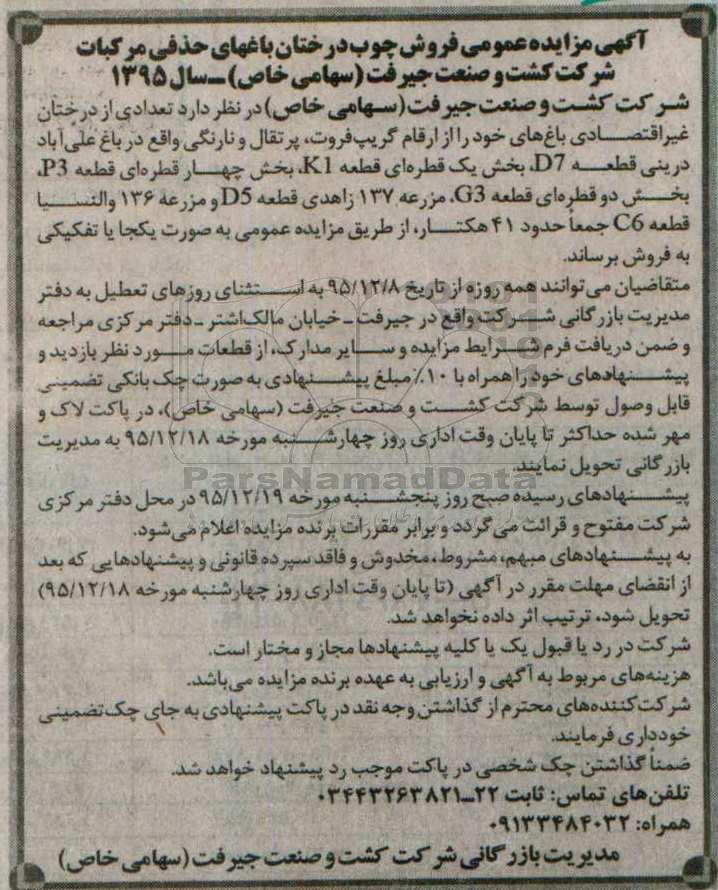 آگهی مزایده عمومی فروش چوب درختان باغهای حذفی مرکبات
شرکت کشت و صنعت جیرفت (سهامی خاص) ـ سال ۱۳۹۵
شرکت کشت و صنعت جیرفت (سهامی خاص) در نظر دارد تعدادی از درختان
غیراقتصادی باغ‌های خود را از ارقام گریپ‌فروت، پرتقال و نارنگی واقع در باغ علی‌آباد
درینی قطعه D7، بخش یک قطره‌ای قطعه K1، بخش چهار قطره‌ای قطعه P3،
بخش دو قطره‌ای قطعه G3، مزرعه ۱۳۷ زاهدی قطعه D5 و مزرعه ۱۳۶ والنسیا
قطعه C6 جمعاً حدود ۴۱ هکتار، از طریق مزایده عمومی به صورت یکجا یا تفکیکی
به فروش برساند.
متقاضیان می‌توانند همه روزه از تاریخ ۹۵/۱۲/۸ به استثنای روزهای تعطیل به دفتر
مدیریت بازرگانی شرکت واقع در جیرفت ـ خیابان مالک‌اشتر ـ دفتر مرکزی مراجعه
و ضمن دریافت فرم شرایط مزایده و سایر مدارک، از قطعات مورد نظر بازدید و
پیشنهادهای خود را همراه با ۱۰٪ مبلغ پیشنهادی به صورت چک بانکی تضمینی
قابل وصول توسط شرکت کشت و صنعت جیرفت (سهامی خاص)، در پاکت لاک و
مهر شده حداکثر تا پایان وقت اداری روز چهارشنبه مورخه ۹۵/۱۲/۱۸ به مدیریت
بازرگانی تحویل نمایند.
ParsNamadData
پیشنهادهای رسیده صبح روز پنجشنبه مورخه ۹۵/۱۲/۱۹ در محل دفتر مرکزی
شرکت مفتوح و قرائت می‌گردد و برابر مقررات برنده مزایده اعلام می‌شود.
به پیشنهادهای مبهم، مشروط، مخدوش و فاقد سپرده قانونی و پیشنهادهایی که بعد
از انقضای مهلت مقرر در آگهی (تا پایان وقت اداری روز چهارشنبه مورخه ۹۵/۱۲/۱۸)
تحویل شود، ترتیب اثر داده نخواهد شد.
شرکت در رد یا قبول یک یا کلیه پیشنهادها مجاز و مختار است.
هزینه‌های مربوط به آگهی و ارزیابی به عهده برنده مزایده می‌باشد.
شرکت‌کننده‌های محترم از گذاشتن وجه نقد در پاکت پیشنهادی به جای چک تضمینی
خودداری فرمایند.
ضمناً گذاشتن چک شخصی در پاکت موجب رد پیشنهاد خواهد شد.
تلفن‌های تماس: ثابت ۲۲ـ۰۳۴۴۳۲۶۳۸۲۱
همراه: ۰۹۱۳۳۴۸۴۰۳۲
مدیریت بازرگانی شرکت کشت و صنعت جیرفت (سهامی خاص)